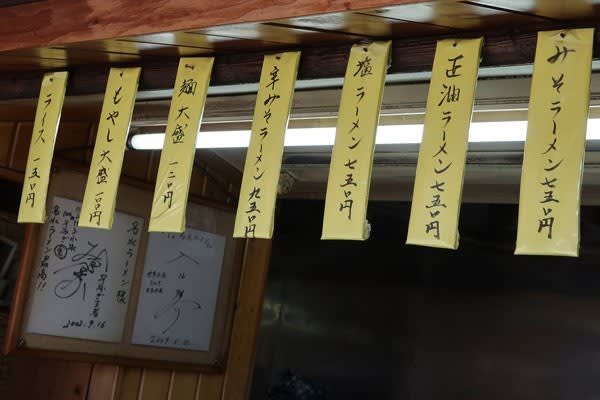 みそラーメン 七五〇円
正油ラーメン 七五〇円
塩ラーメン 七五〇円
辛みそラーメン 九五〇円
麺大盛 一二〇円
もやし大盛 一五〇円
ライス 一五〇円
名水ラーメン様
最高!!
2002.9.16